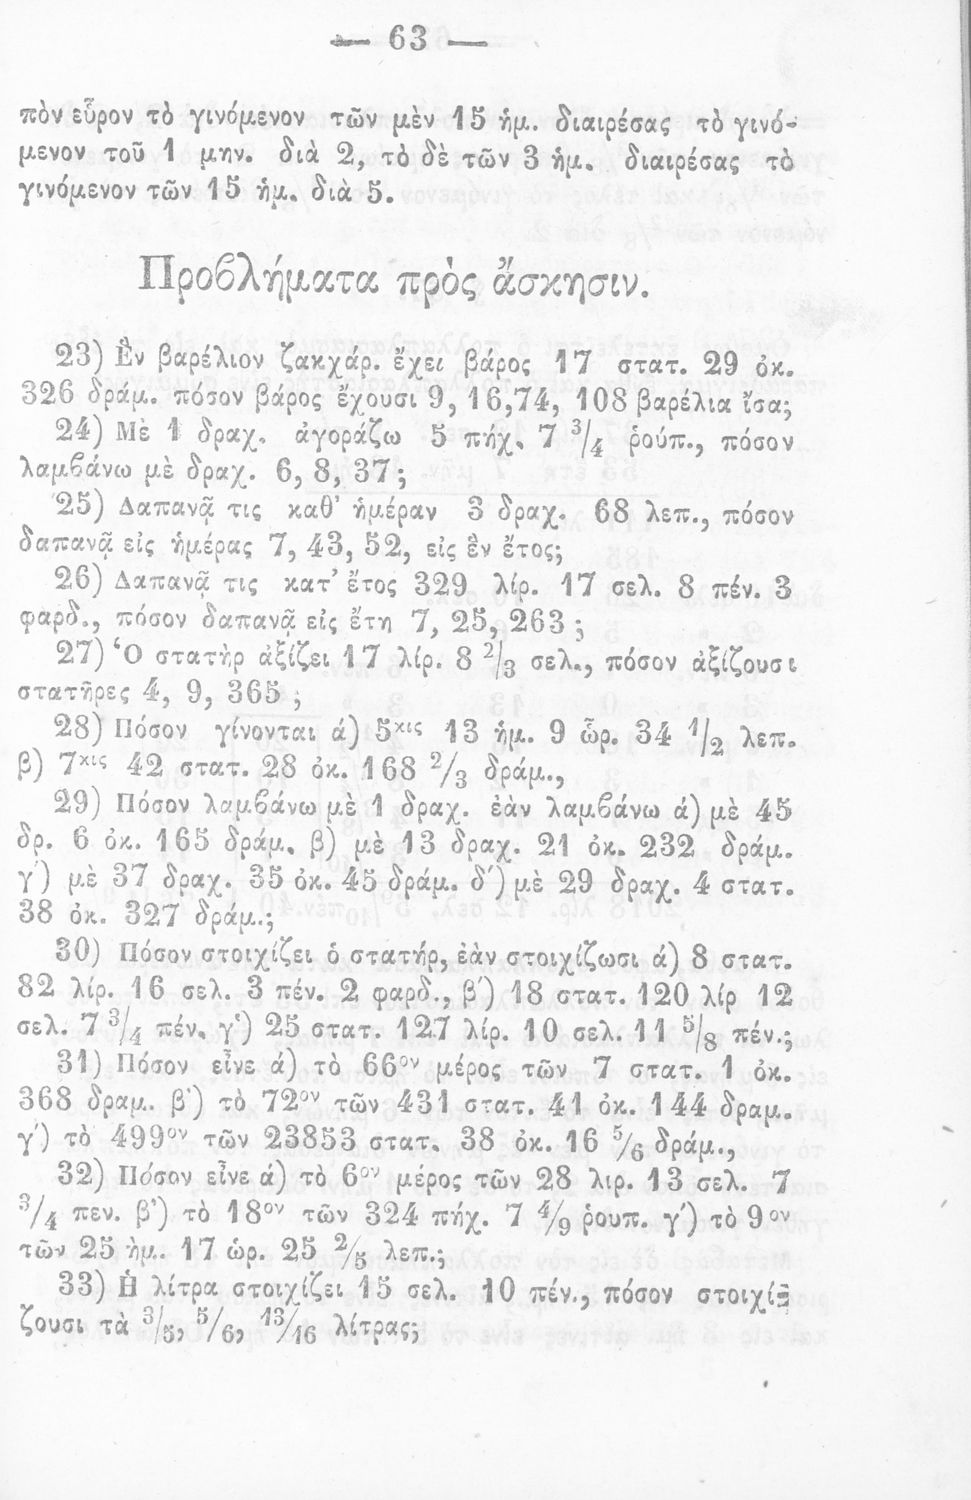 — 63 —
πὸν εὗρον τὸ γινόμενον τῶν μὲν 15 ἡμ. διαιρέσας τὸ γινό-
μενον τοῦ 1 μην. διὰ 2, τὸ δὲ τῶν 3 ἡμ. διαιρέσας τὸ
γινόμενον τῶν 15 ἡμ. διὰ 5.
Προβλήματα πρὸς ἄσκησιν.
23) Ἓν βαρέλιον ζακχάρ. ἔχει βάρος 17 στατ. 29 ὀκ.
326 δραμ. πόσον βάρος ἔχουσι 9, 16,74, 108 βαρέλια ἴσα;
24) Μὲ 1 δραχ. ἀγοράζω 5 πήχ. 7 3/4 ῥούπ., πόσον
λαμβάνω μὲ δραχ. 6, 8, 37;
25) Δαπανᾷ τις καθ' ἡμέραν 3 δραχ. 68 λεπ., πόσον
δαπανᾷ εἰς ἡμέρας 7, 43, 52, εἰς ἓν ἔτος;
26) Δαπανᾷ τις κατ' ἔτος 329 λίρ. 17 σελ. 8 πέν. 3
φαρδ., πόσον δαπανᾷ εἰς ἔτη 7, 25, 263;
27) Ὁ στατὴρ ἀξίζει 17 λίρ. 8 2/3 σελ., πόσον ἀξίζουσι
στατῆρες 4, 9, 365;
28) Πόσον γίνονται ά) 5κις 13 ἡμ. 9 ὧρ. 34 1/2 λεπ.
β) 7κις 42 στατ. 28 ὀκ. 168 2/3 δράμ.,
29) Πόσον λαμβάνω μὲ 1 δραχ. ἐὰν λαμβάνω ά) μὲ 45
δρ. 6 ὀκ. 165 δράμ. β) μὲ 13 δραχ. 21 ὀκ. 232 δράμ.
γ') μὲ 37 δραχ. 35 ὀκ. 45 δράμ. δ') μὲ 29 δραχ. 4 στατ.
38 ὀκ. 327 δράμ.;
30) Πόσον στοιχίζει ὁ στατήρ, ἐὰν στοιχίζωσι ά) 8 στατ.
82 λίρ. 16 σελ. 3 πέν. 2 φαρδ., β') 18 στατ. 120 λίρ 12
σελ. 7 3/4 πέν. γ') 25 στατ. 127 λίρ. 10 σελ. 11 5/8 πέν.;
31) Πόσον εἶνε ά) τὸ 66ον μέρος τῶν 7 στατ. 1 ὀκ.
368 δραμ. β') τὸ 72ον τῶν 431 στατ. 41 ὀκ. 144 δραμ.
γ') τὸ 499ον τῶν 23853 στατ. 38 ὀκ. 16 5/6 δράμ.,
32) Πόσον εἶνε ά) τὸ 6ον μέρος τῶν 28 λιρ. 13 σελ. 7
3/4 πεν. β') τὸ 18ον τῶν 324 πήχ. 7 4/9 ῥουπ. γ') τὸ 9ον
τῶν 25 ἡμ. 17 ὡρ. 25 2/5 λεπ.;
33) Ἡ λίτρα στοιχίζει 15 σελ. 10 πέν., πόσον στοιχί-
ζουσι τὰ 3/5, 5/6, 13/16 λίτρας;